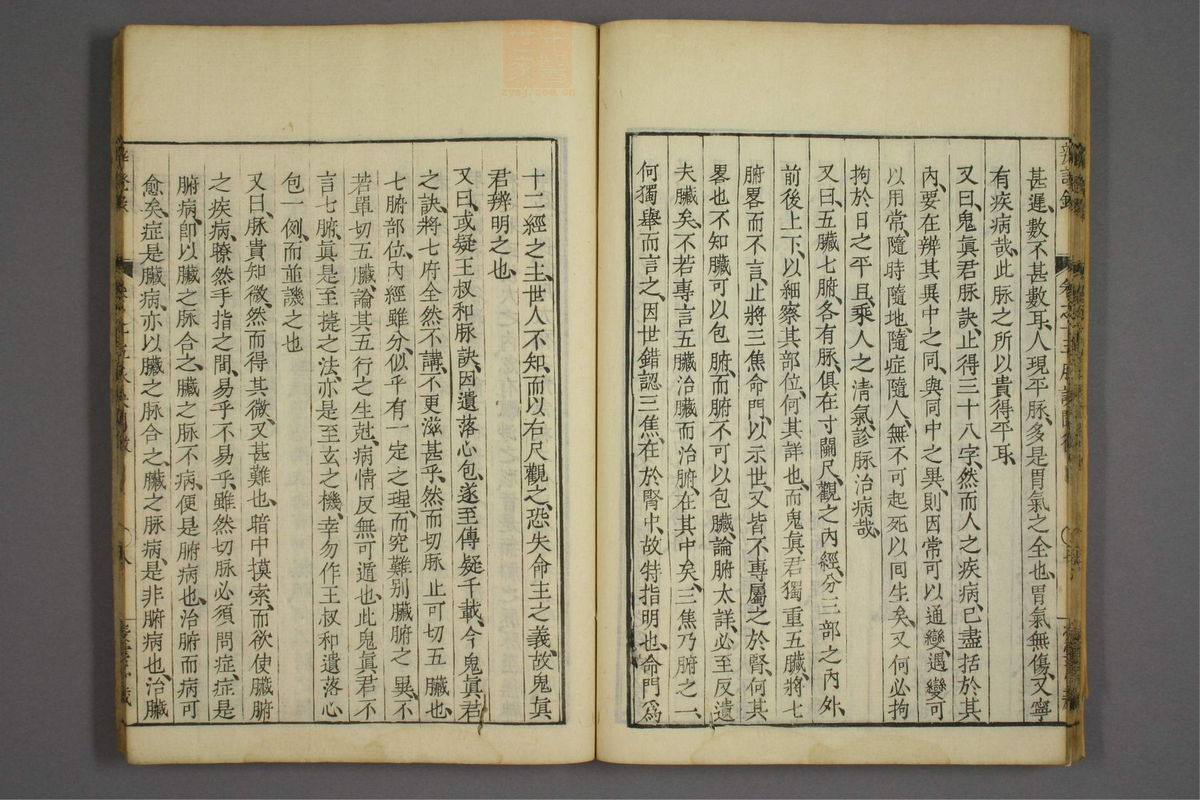 甚遲、數不甚數耳、人現平脉、多是胃氣之全也、胃氣無傷、又寧
有疾病哉、此脉之所以貴得平耳、
又曰、鬼眞君脉訣、止得三十八字、然而人之疾病、已盡括於其
內、要在辨其異中之同、與同中之異、則因常可以通變、遇變可
以用常、隨時隨地、隨症隨人、無不可起死以回生矣、又何必拘
拘於日之平旦、乘人之清氣、診脉治病哉、
又曰、五臟七腑、各有脉、俱在寸關尺、觀之內經、分三部之內外、
前後上下、以細察其部位、何其詳也、而鬼眞君獨重五臟、將七
腑畧而不言、止將三焦命門、以示世、又皆不專屬之於腎、何其
畧也、不知臟可以包腑、而腑不可以包臟、論腑太詳、必至反遺
夫臟矣、不若專言五臟、治臟而治腑、在其中矣、三焦乃腑之一、
何獨舉而言之、因世錯認三焦、在於腎中、故特指明也、命門爲
十二經之主、世人不知、而以右尺觀之、恐失命主之義、故鬼眞
君辨明之也、
又曰、或疑王叔和脉訣、因遺落心包、遂至傳疑千載、今鬼眞君
之訣、將七府全然不講、不更滋甚乎、然而切脉、止可切五臟也、
七腑部位、內經雖分、似乎有一定之理、而究難别臟腑之異、不
若單切五臟、論其五行之生尅、病情反無可遁也、此鬼眞君不
言七腑、眞是至揵之法、亦是至玄之機、幸勿作王叔和遺落心
包一例、而並譏之也、
又曰、脉貴知微、然而得其微、又甚難也、暗中摸索、而欲使臟腑
之疾病、瞭然手指之間、易乎不易乎、雖然切脉必須問症、症是
腑病、卽以臟之脉合之、臟之脉不病、便是腑病也、治腑而病可
愈矣、症是臟病、亦以臟之脉合之、臟之脉病、是非腑病也、治臟